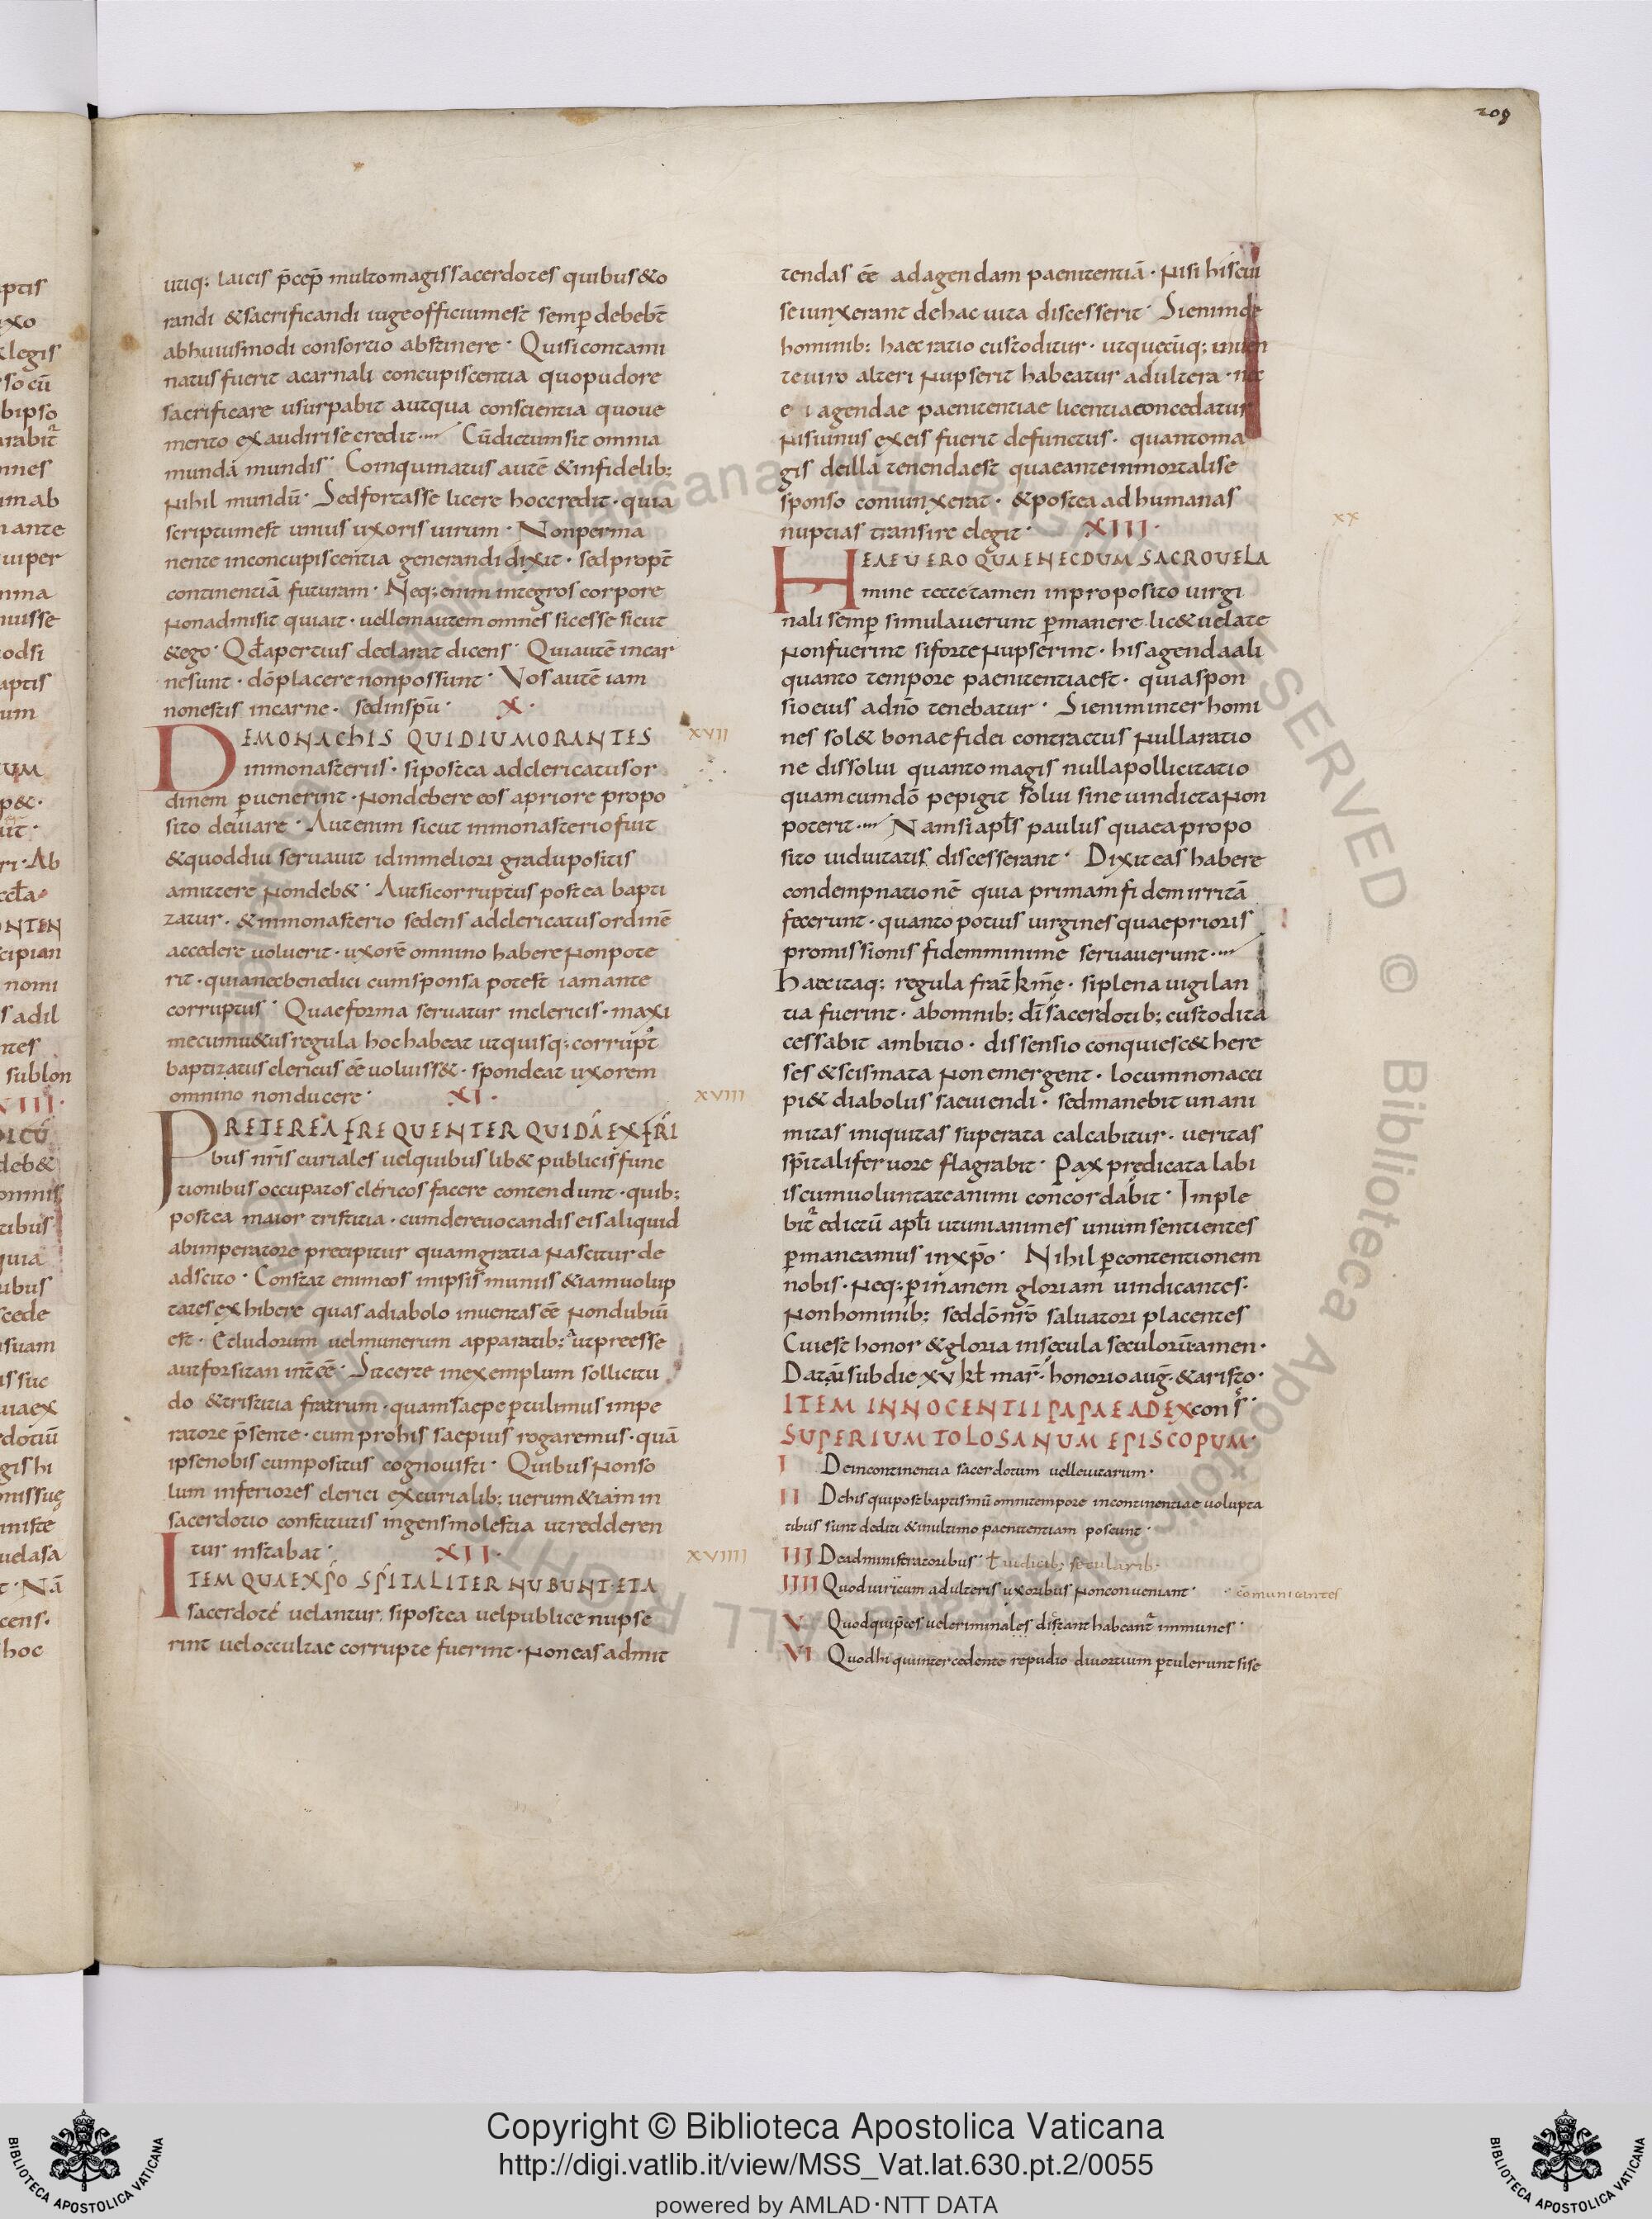 209
utiq: laicis p̄cep̄ multo magis sacerdotes quibus & o
randi & sacrificandi iuge officium est semp debebt̄
ab huiusmodi consortio abstinere · Qui si contami
natus fuerit a carnali concupiscentia quo pudore
sacrificare usurpabit aut qua conscientia quoue
merito exaudiri se credit ···· Cū dictum sit omnia
munda mundis · Coinquinatus autē & infidelib:
Nihil mundū · Sed fortasse licere hoc credit · quia
scriptum est unius uxoris uirum · Non perma
nente in concupiscentia generandi dixit · sed propt̄
continentiā futuram · Neq: enim integros corpore
Non admisit qui ait · uellem autem omnes sic esse sicut
& ego · Qd̄ apertius declarat dicens · Qui autē in car
ne sunt · dō placere non possunt · Vos autē iam
non estis in carne · sed in sp̄u · X ·
XVII
DE MONAChIS QUI DIU MORANTES
in monasteriis · si postea ad clericatus or
dinem puenerint · Non debere eos a priore propo
sito deuiare · Aut enim sicut in monasterio fuit
& quod diu seruauit id in meliori gradu positis
amittere Non deb& · Aut si corruptus postea bapti
zatur · & in monasterio sedens ad clericatus ordinē
accedere uoluerit · uxorē omnino habere Non pote
rit · quia nec benedici cum sponsa potest iam ante
corruptus · Quae forma seruatur in clericis · maxi
me cum u&us regula hoc habeat ut quisq: corrupt̄
baptizatus clericus eē uoluiss& · spondeat uxorem
omnino non ducere · XI ·
XVIII
PRETEREA FREQUENTER QUIDĀ EX FRĪ
bus nr̄is curiales uel quibuslib& publicis func
tionibus occupatos clericos facere contendunt · quib:
postea maior tristitia · cum de reuocandis eis aliquid
ab imperatore precipitur quam gratia Nascitur de
adscito · Constat enim eos in ipsis muniis &iam uolup
tates exhibere quas a diabolo inuentas eē Non dubiū
est · Et ludorum uel munerum apparatib: ut preesse
aut forsitan int̄eē · Sit certe in exemplum sollicitu
do & tristitia fratrum · quam saepe ptulimus impe
ratore p̄sente · cum pro his saepius rogaremus · quā
ipse nobiscum positus cognouisti · Quibus Non so
lum inferiores clerici ex curialib: uerum &iam in
sacerdotio constitutis ingens molestia ut redderen
tur instabat · XII ·
XVIIII
ITEM QUAE XP̄O SP̄ITALITER NUBUNT · ET A
sacerdote uelantur, si postea uel publice nupse
rint uel occultae corrupte fuerint · Non eas admit
tendas eē ad agendam paenitentiā · Nisi his cui
se iunxerant de hac uita discesserit · Si enim de
hominib: haec ratio custoditur · ut quecūq: uiuen
te uiro alteri Nupserit habeatur adultera · nec
ei agendae paenitentiae licentia concedatur
Nisi unus ex eis fuerit defunctus · quanto ma
gis de illa tenenda est quae ante inmortali se
sponso coniunxerat · & postea ad humanas
nuptias transire elegit · XIII ·
XX
HEAE UERO QUAE NECDUM SACRO UELA
mine tecte tamen in proposito uirgi
nali semp simulauerunt pmanere · lic& uelate
Non fuerint si forte Nupserint · his agenda ali
quanto tempore paenitentia est · quia spon
sio eius a dn̄o tenebatur · Si enim inter homi
nes sol& bonae fidei contractus Nulla ratio
ne dissolui quanto magis nulla pollicitatio
quam cum dō pepigit solui sine uindicta Non
poterit ···· Nam si apl̄s paulus quae a propo
sito uiduitatis discesserant · Dixit eas habere
condempnationē quia primam fidem irritā
fecerunt · quanto potius uirgines quae prioris
promissionis fidem minime seruauerunt ····
Haec itaq: regula frat̄ km̄e · si plena uigilan
tia fuerint · ab omnib: dī sacerdotib: custodita
cessabit ambitio · dissensio conquiesc& here
ses & scismata Non emergent · locum non acci
pi& diabolus saeuiendi · sed manebit unani
mitas iniquitas superata calcabitur · ueritas
sp̄itali feruore flagrabit · Pax predicata labi
is cum uoluntate animi concordabit · Imple
bit̄ edictū apl̄i ut unianimes unum sentientes
pmaneamus in xp̄o · Nihil p contentionem
nobis · Neq: p inanem gloriam uindicantes ·
Non hominib: sed dō nr̄o saluatori placentes
Cui est honor & gloria in secula seculorū amen ·
Data sub die xv kl̄ mar̄ · honorio aug̅ · & aristo ·
ITEM INNOCENTII PAPAE AD EX cons̄ ·
SUPERIUM TOLOSANUM EPISCOPUM ·
I De incontinentia sacerdotum uel leuitarum ·
II De his qui post baptismū omni tempore incontinentiae uolupta
tibus sunt dediti & in ultimo paenitentiam poscunt ·
III De administratoribus · ł iudicib: secularib.
IIII Quod uiri cum adulteris uxoribus Non conueniant · comunicantes
V Quod qui p̄ces uel criminales dictant habeant̄ immunes ·
VI Quod hi qui intercedente repudio diuortium ptulerunt si se
Copyright © Biblioteca Apostolica Vaticana
http://digi.vatlib.it/view/MSS_Vat.lat.630.pt.2/0055
powered by AMLAD·NTT DATA
BIBLIOTECA APOSTOLICA VATICANA
BIBLIOTECA APOSTOLICA VATICANA